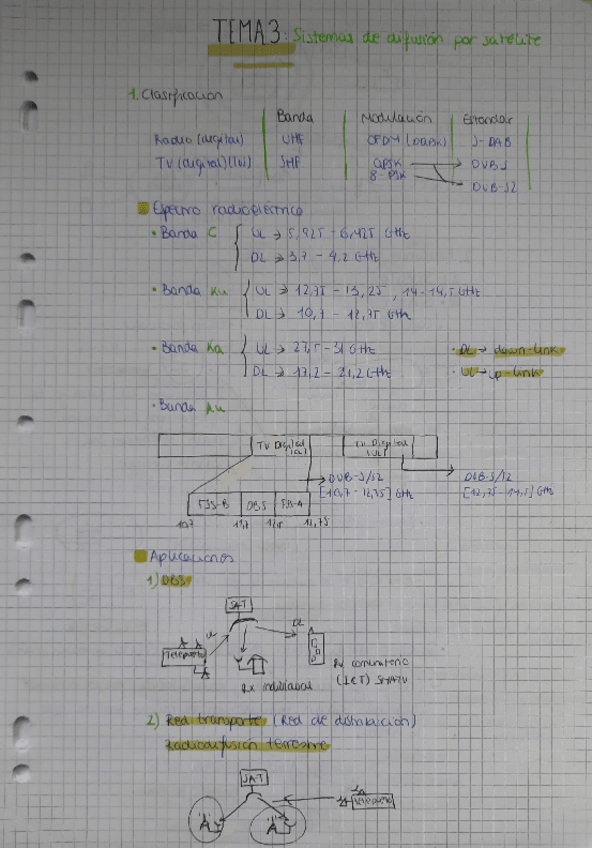 TEMA 3: Sistemas de difusión por satélite
1. Clasificación
Banda Modulación Estandar
Radio (digital) UHF OFDM (DQPSK) S-DAB
TV (digital) (TVD) SHF QPSK DVB-S
8-PSK DVB-S2
Espectro radioeléctrico
• Banda C UL → 5,925 - 6,425 GHz
DL → 3,7 - 4,2 GHz
• Banda Ku UL → 12,75 - 13,25, 14 - 14,5 GHz
DL → 10,7 - 12,75 GHz
• Banda Ka UL → 27,5 - 31 GHz
DL → 17,2 - 21,2 GHz
• DL → down-link
• UL → up-link
• Banda Ku
TV Digital (DL) TV Digital (UL)
DVB-S/S2
[10,7 - 12,75] GHz
DVB-S/S2
[12,75 - 14,5] GHz
FSS-B DBS FSS-A
10,7 11,7 12,5 12,75
Aplicaciones
1) DBS
SAT
UL DL
Telepuerto
Rx individual
Rx comunitario
(ICT) SMATV
2) Red transporte (Red de distribución)
Radiodifusión terrestre
SAT
Telepuerto